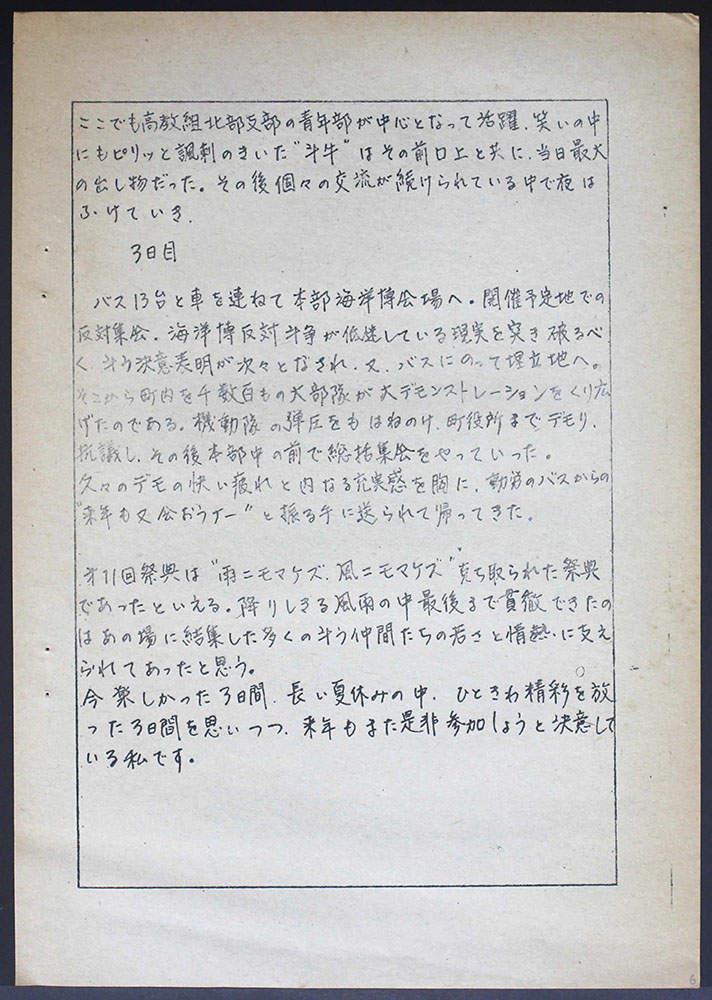 ここでも高教組北部支部の青年部が中心となって活躍、笑いの中
にもピリッと諷刺のきいた“斗牛”はその前口上と共に、当日最大
の出し物だった。その後個々の交流が続けられている中で夜は
ふけていき、
3日目
バス13台と車を連ねて本部海洋博会場へ。開催予定地での
反対集会。海洋博反対斗争が低迷している現実を突き破るべ
く、斗う決意表明が次々となされ、又、バスにのって埋立地へ。
そこから町内を千数百もの大部隊が大デモンストレーションをくり広
げたのである。機動隊の弾圧をもはねのけ、町役所までデモり、
抗議し、その後本部中の前で総括集会をやっていった。
久々のデモの快い疲れと内なる充実感を胸に、動労のバスからの
“来年も又会おうナー”と振る手に送られて帰ってきた。
第11回祭典は“雨ニモマケズ、風ニモマケズ”勝ち取られた祭典
であったといえる。降りしきる風雨の中最後まで貫徹できたの
はあの場に結集した多くの斗う仲間たちの若さと情熱に支え
られてあったと思う。
今楽しかった3日間、長い夏休みの中、ひときわ精彩を放
った3日間を思いつつ、来年もまた是非参加しようと決意して
いる私です。
6